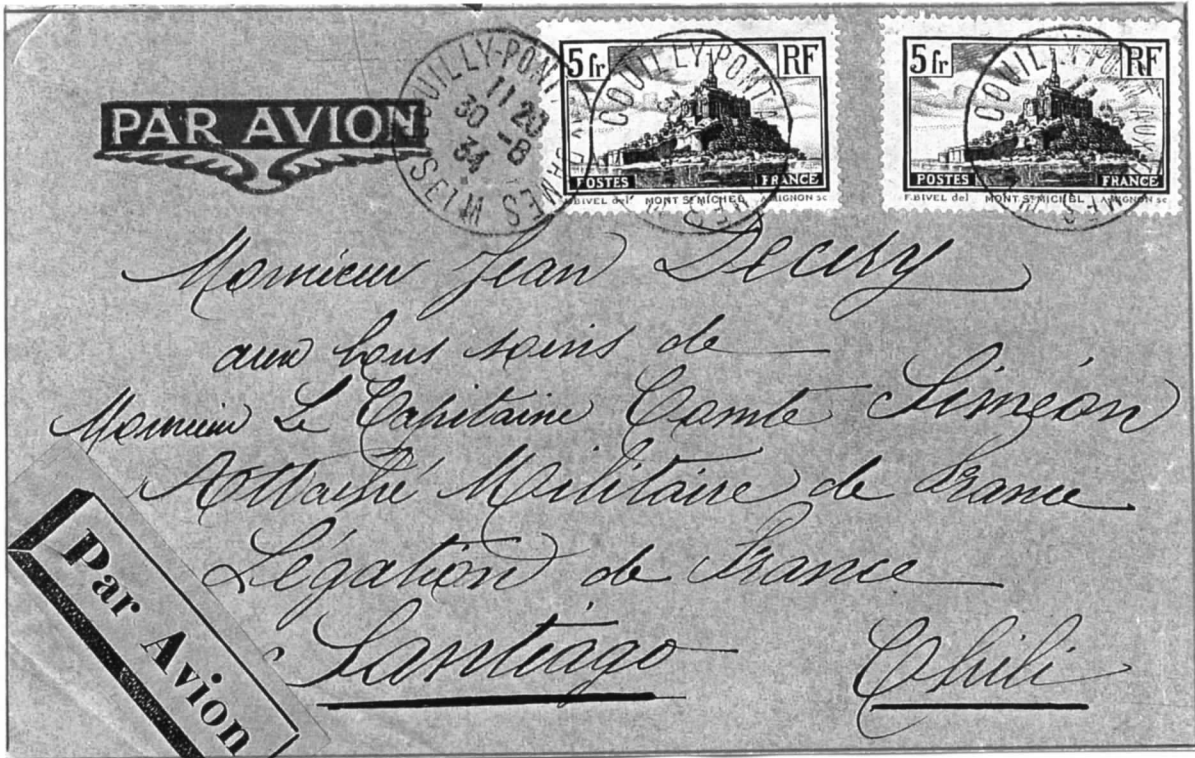 PAR AVION
COUILLY-PONT-AUX-DAMES
11 20
30 -8
34
S ET M
5 fr RF
POSTES FRANCE
F. BIVEL del MONT ST MICHEL A. MIGNON sc
5 fr RF
POSTES FRANCE
F. BIVEL del MONT ST MICHEL A. MIGNON sc
Monsieur Jean Decury
aux bons soins de
Monsieur Le Capitaine Comte Siméon
Attaché Militaire de France
Légation de France
Santiago Chili
Par Avion